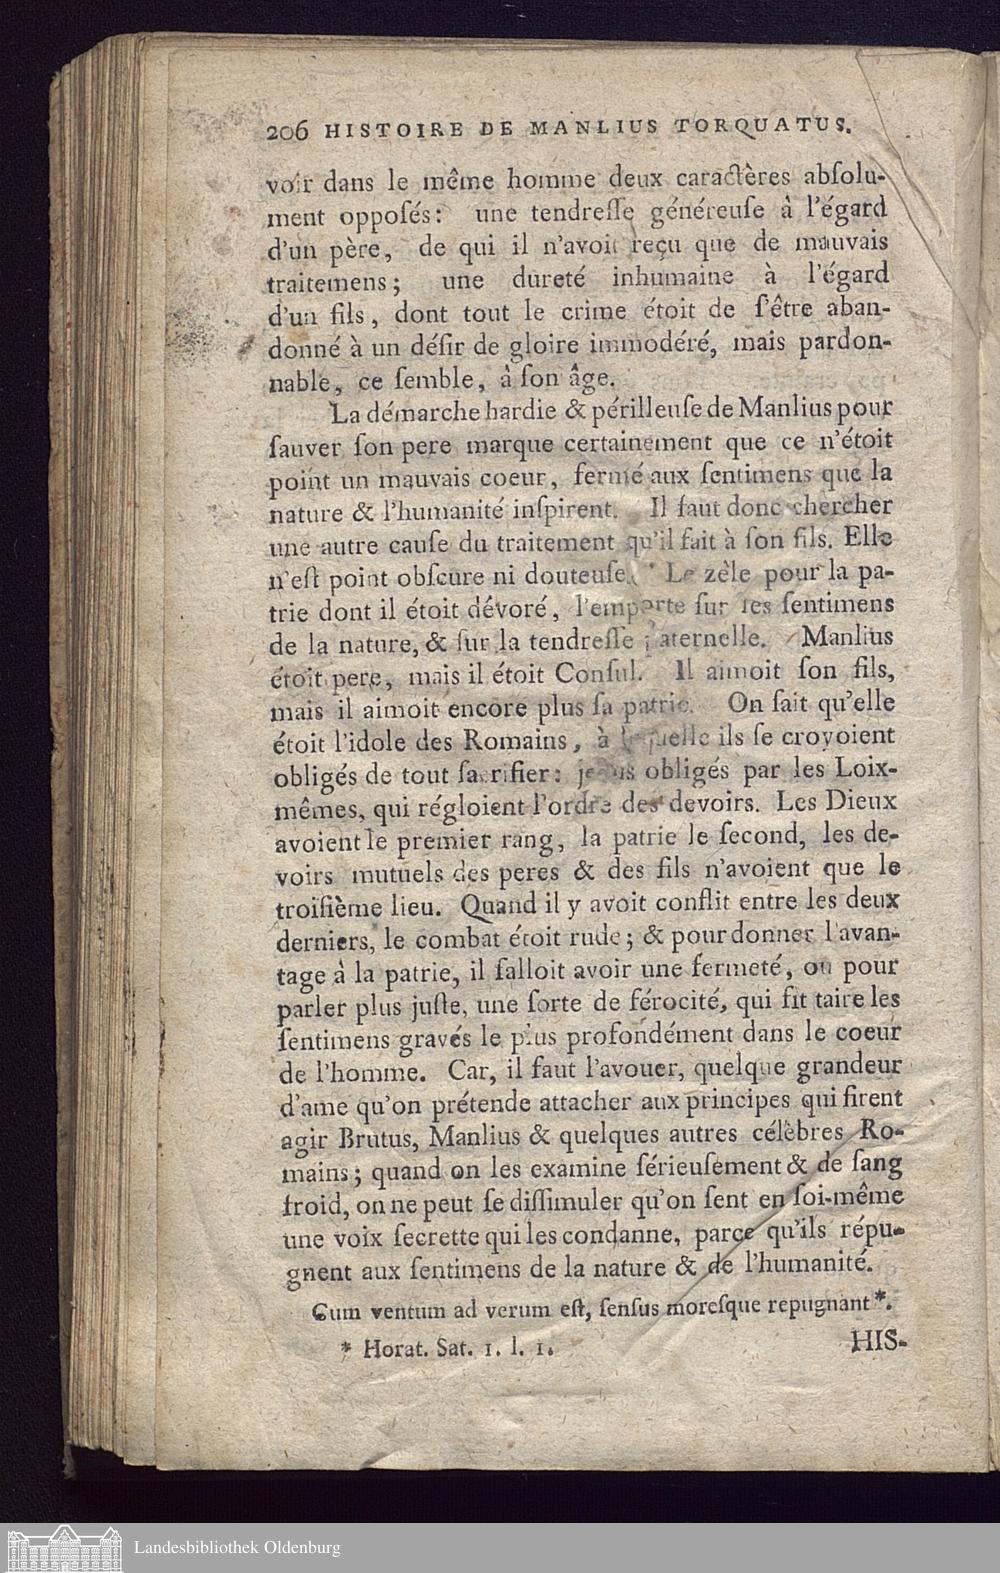 206 HISTOIRE DE MANLIUS TORQUATUS.
voir dans le même homme deux caractères abſolu-
ment oppoſés: une tendreſſe généreuſe à l'égard
d'un père, de qui il n'avoit reçu que de mauvais
traitemens; une dureté inhumaine à l'égard
d'un fils, dont tout le crime étoit de s'être aban-
donné à un déſir de gloire immodéré, mais pardon-
nable, ce ſemble, à ſon âge.
La démarche hardie & périlleuſe de Manlius pour
ſauver ſon pere marque certainement que ce n'étoit
point un mauvais coeur, fermé aux ſentimens que la
nature & l'humanité inſpirent. Il faut donc chercher
une autre cauſe du traitement qu'il fait à ſon fils. Elle
n'eſt point obſcure ni douteuſe. Le zèle pour la pa-
trie dont il étoit dévoré, l'emporte ſur les ſentimens
de la nature, & ſur la tendreſſe paternelle. Manlius
étoit pere, mais il étoit Conſul. Il aimoit ſon fils,
mais il aimoit encore plus ſa patrie. On ſait qu'elle
étoit l'idole des Romains, à laquelle ils ſe croyoient
obligés de tout ſacrifier: obligés par les Loix-
mêmes, qui régloient l'ordre des devoirs. Les Dieux
avoient le premier rang, la patrie le ſecond, les de-
voirs mutuels des peres & des fils n'avoient que le
troiſième lieu. Quand il y avoit conflit entre les deux
derniers, le combat étoit rude; & pour donner l'avan-
tage à la patrie, il falloit avoir une fermeté, ou pour
parler plus juſte, une ſorte de férocité, qui fit taire les
ſentimens gravés le plus profondément dans le coeur
de l'homme. Car, il faut l'avouer, quelque grandeur
d'ame qu'on prétende attacher aux principes qui firent
agir Brutus, Manlius & quelques autres célèbres Ro-
mains; quand on les examine ſérieuſement & de ſang
froid, on ne peut ſe diſſimuler qu'on ſent en ſoi-même
une voix ſecrette qui les condanne, parce qu'ils répu-
gnent aux ſentimens de la nature & de l'humanité.
Cum ventum ad verum eſt, ſenſus moreſque repugnant*.
* Horat. Sat. 1. l. 1.
HIS-
Landesbibliothek Oldenburg